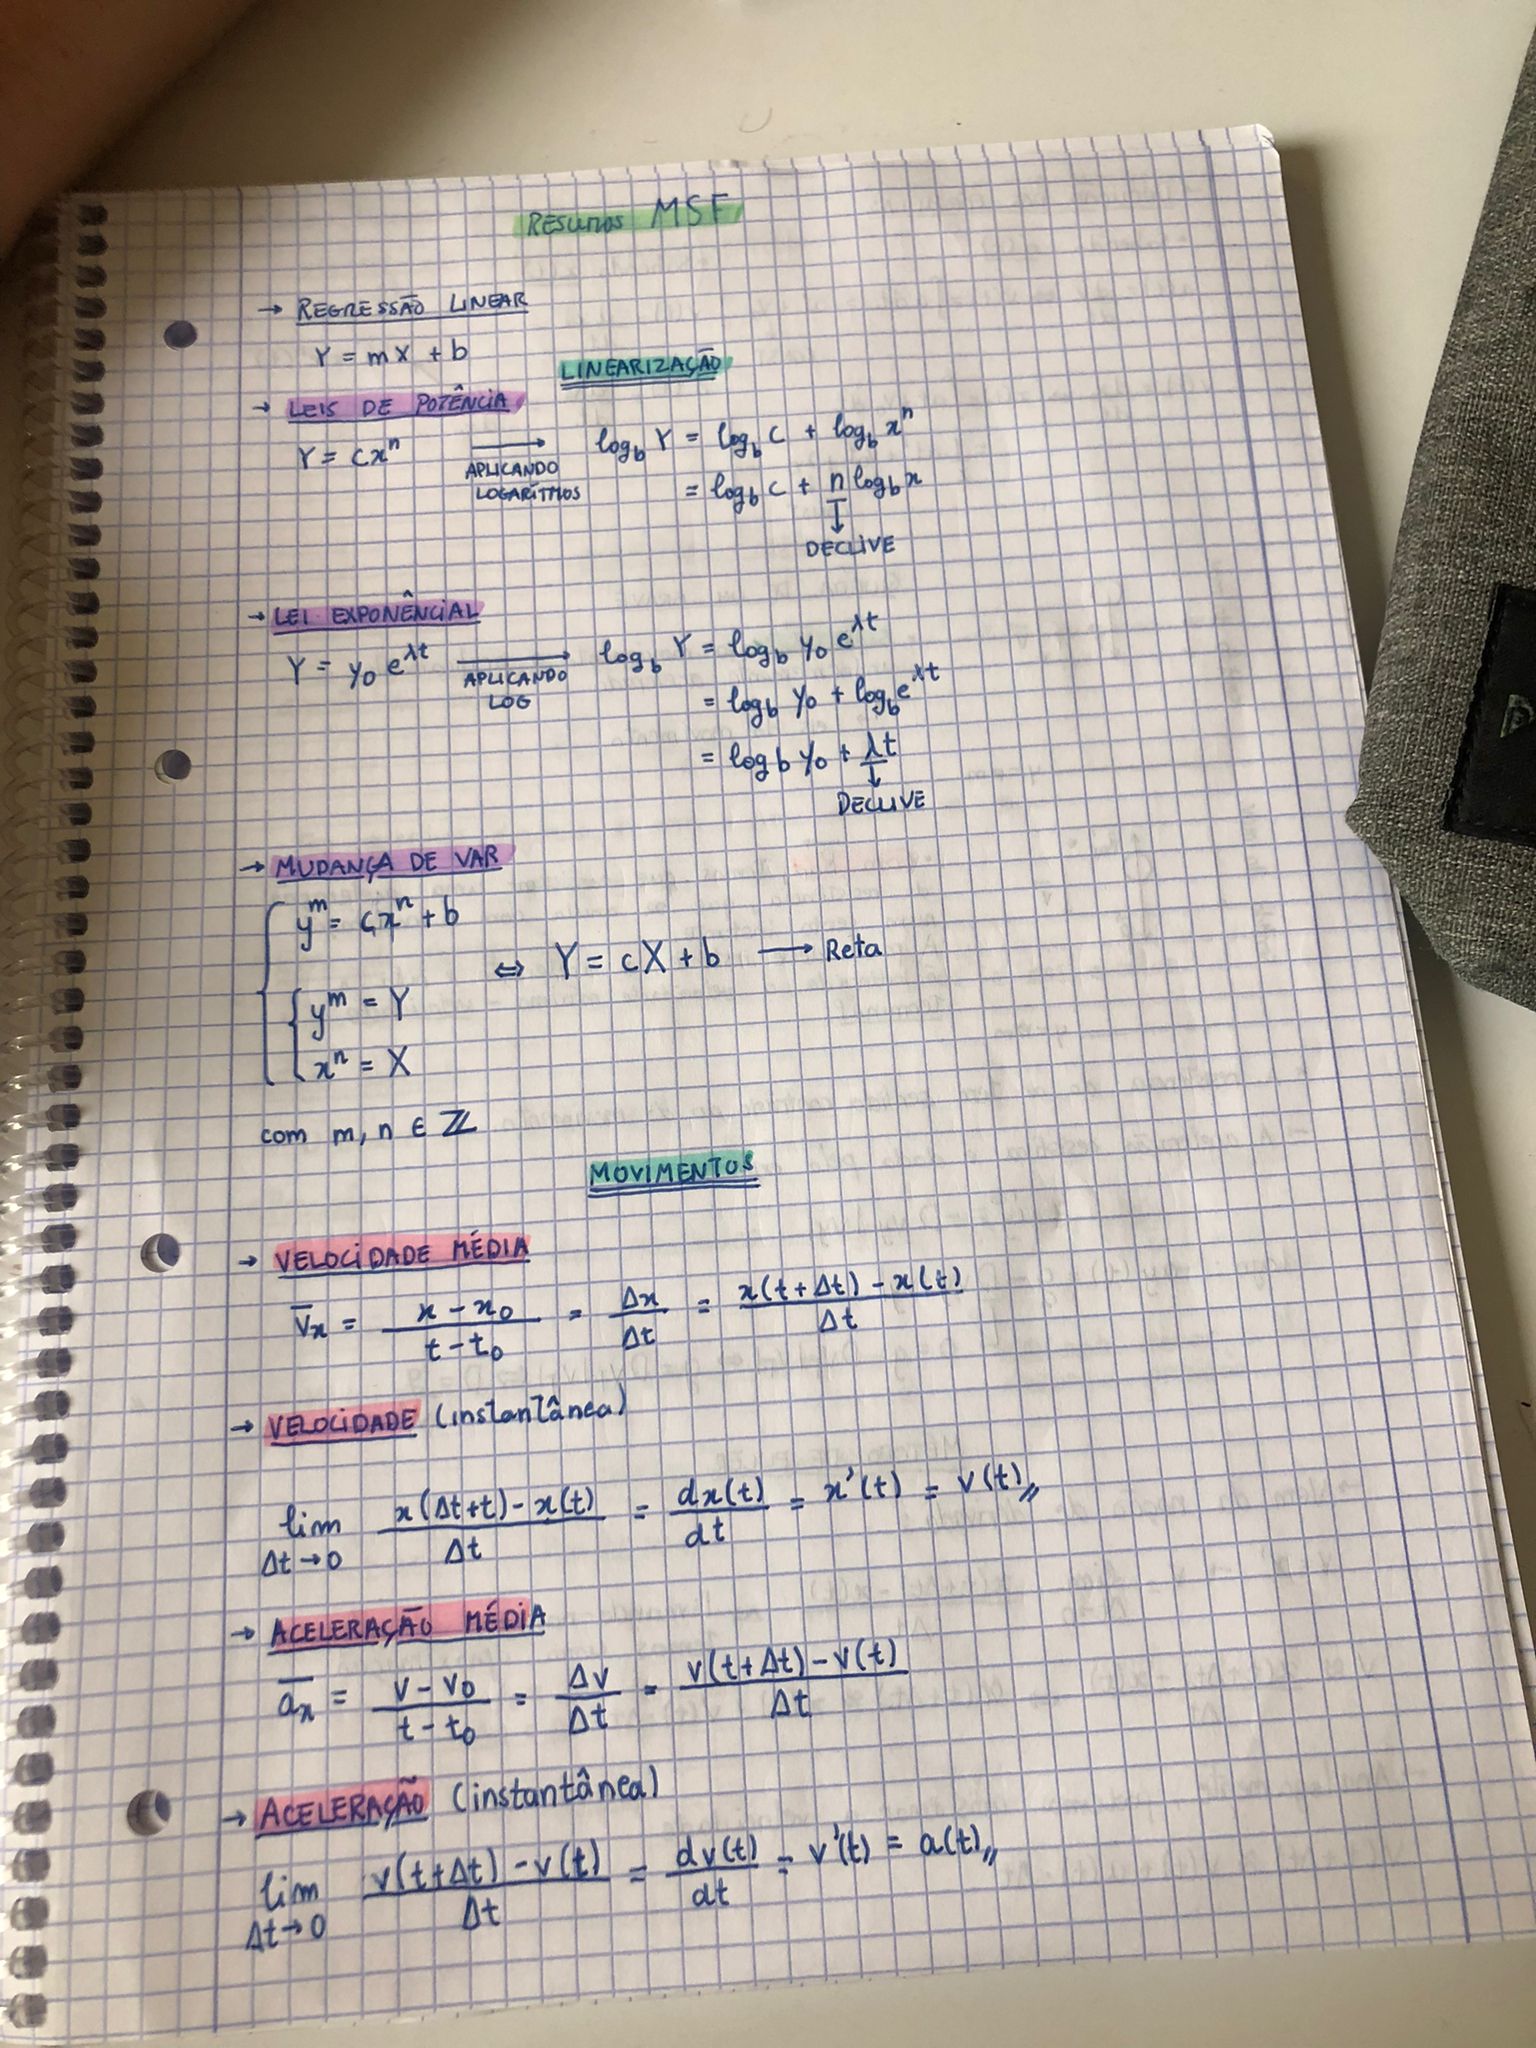 RESUMOS MSF
→ REGRESSÃO LINEAR
Y = mX + b
LINEARIZAÇÃO
→ LEIS DE POTÊNCIA
Y = cxⁿ → APLICANDO LOGARÍTMOS log_b Y = log_b c + log_b xⁿ
= log_b c + n log_b x
↓
DECLIVE
→ LEI EXPONÊNCIAL
Y = y₀ e^λt → APLICANDO LOG log_b Y = log_b y₀ e^λt
= log_b y₀ + log_b e^λt
= log b y₀ + λt
↓
DECLIVE
→ MUDANÇA DE VAR
{ y^m = cxⁿ + b
⇔ Y = cX + b → Reta
{ y^m = Y
xⁿ = X
com m, n ∈ ℤ
MOVIMENTOS
→ VELOCIDADE MÉDIA
v̄ₓ = (x - x₀)/(t - t₀) = Δx/Δt = (x(t + Δt) - x(t))/Δt
→ VELOCIDADE (instantânea)
lim Δt→0 (x(Δt+t) - x(t))/Δt = dx(t)/dt = x'(t) = v(t)//
→ ACELERAÇÃO MÉDIA
āₓ = (v - v₀)/(t - t₀) = Δv/Δt = (v(t+Δt) - v(t))/Δt
→ ACELERAÇÃO (instantânea)
lim Δt→0 (v(t+Δt) - v(t))/Δt = dv(t)/dt = v'(t) = a(t)//